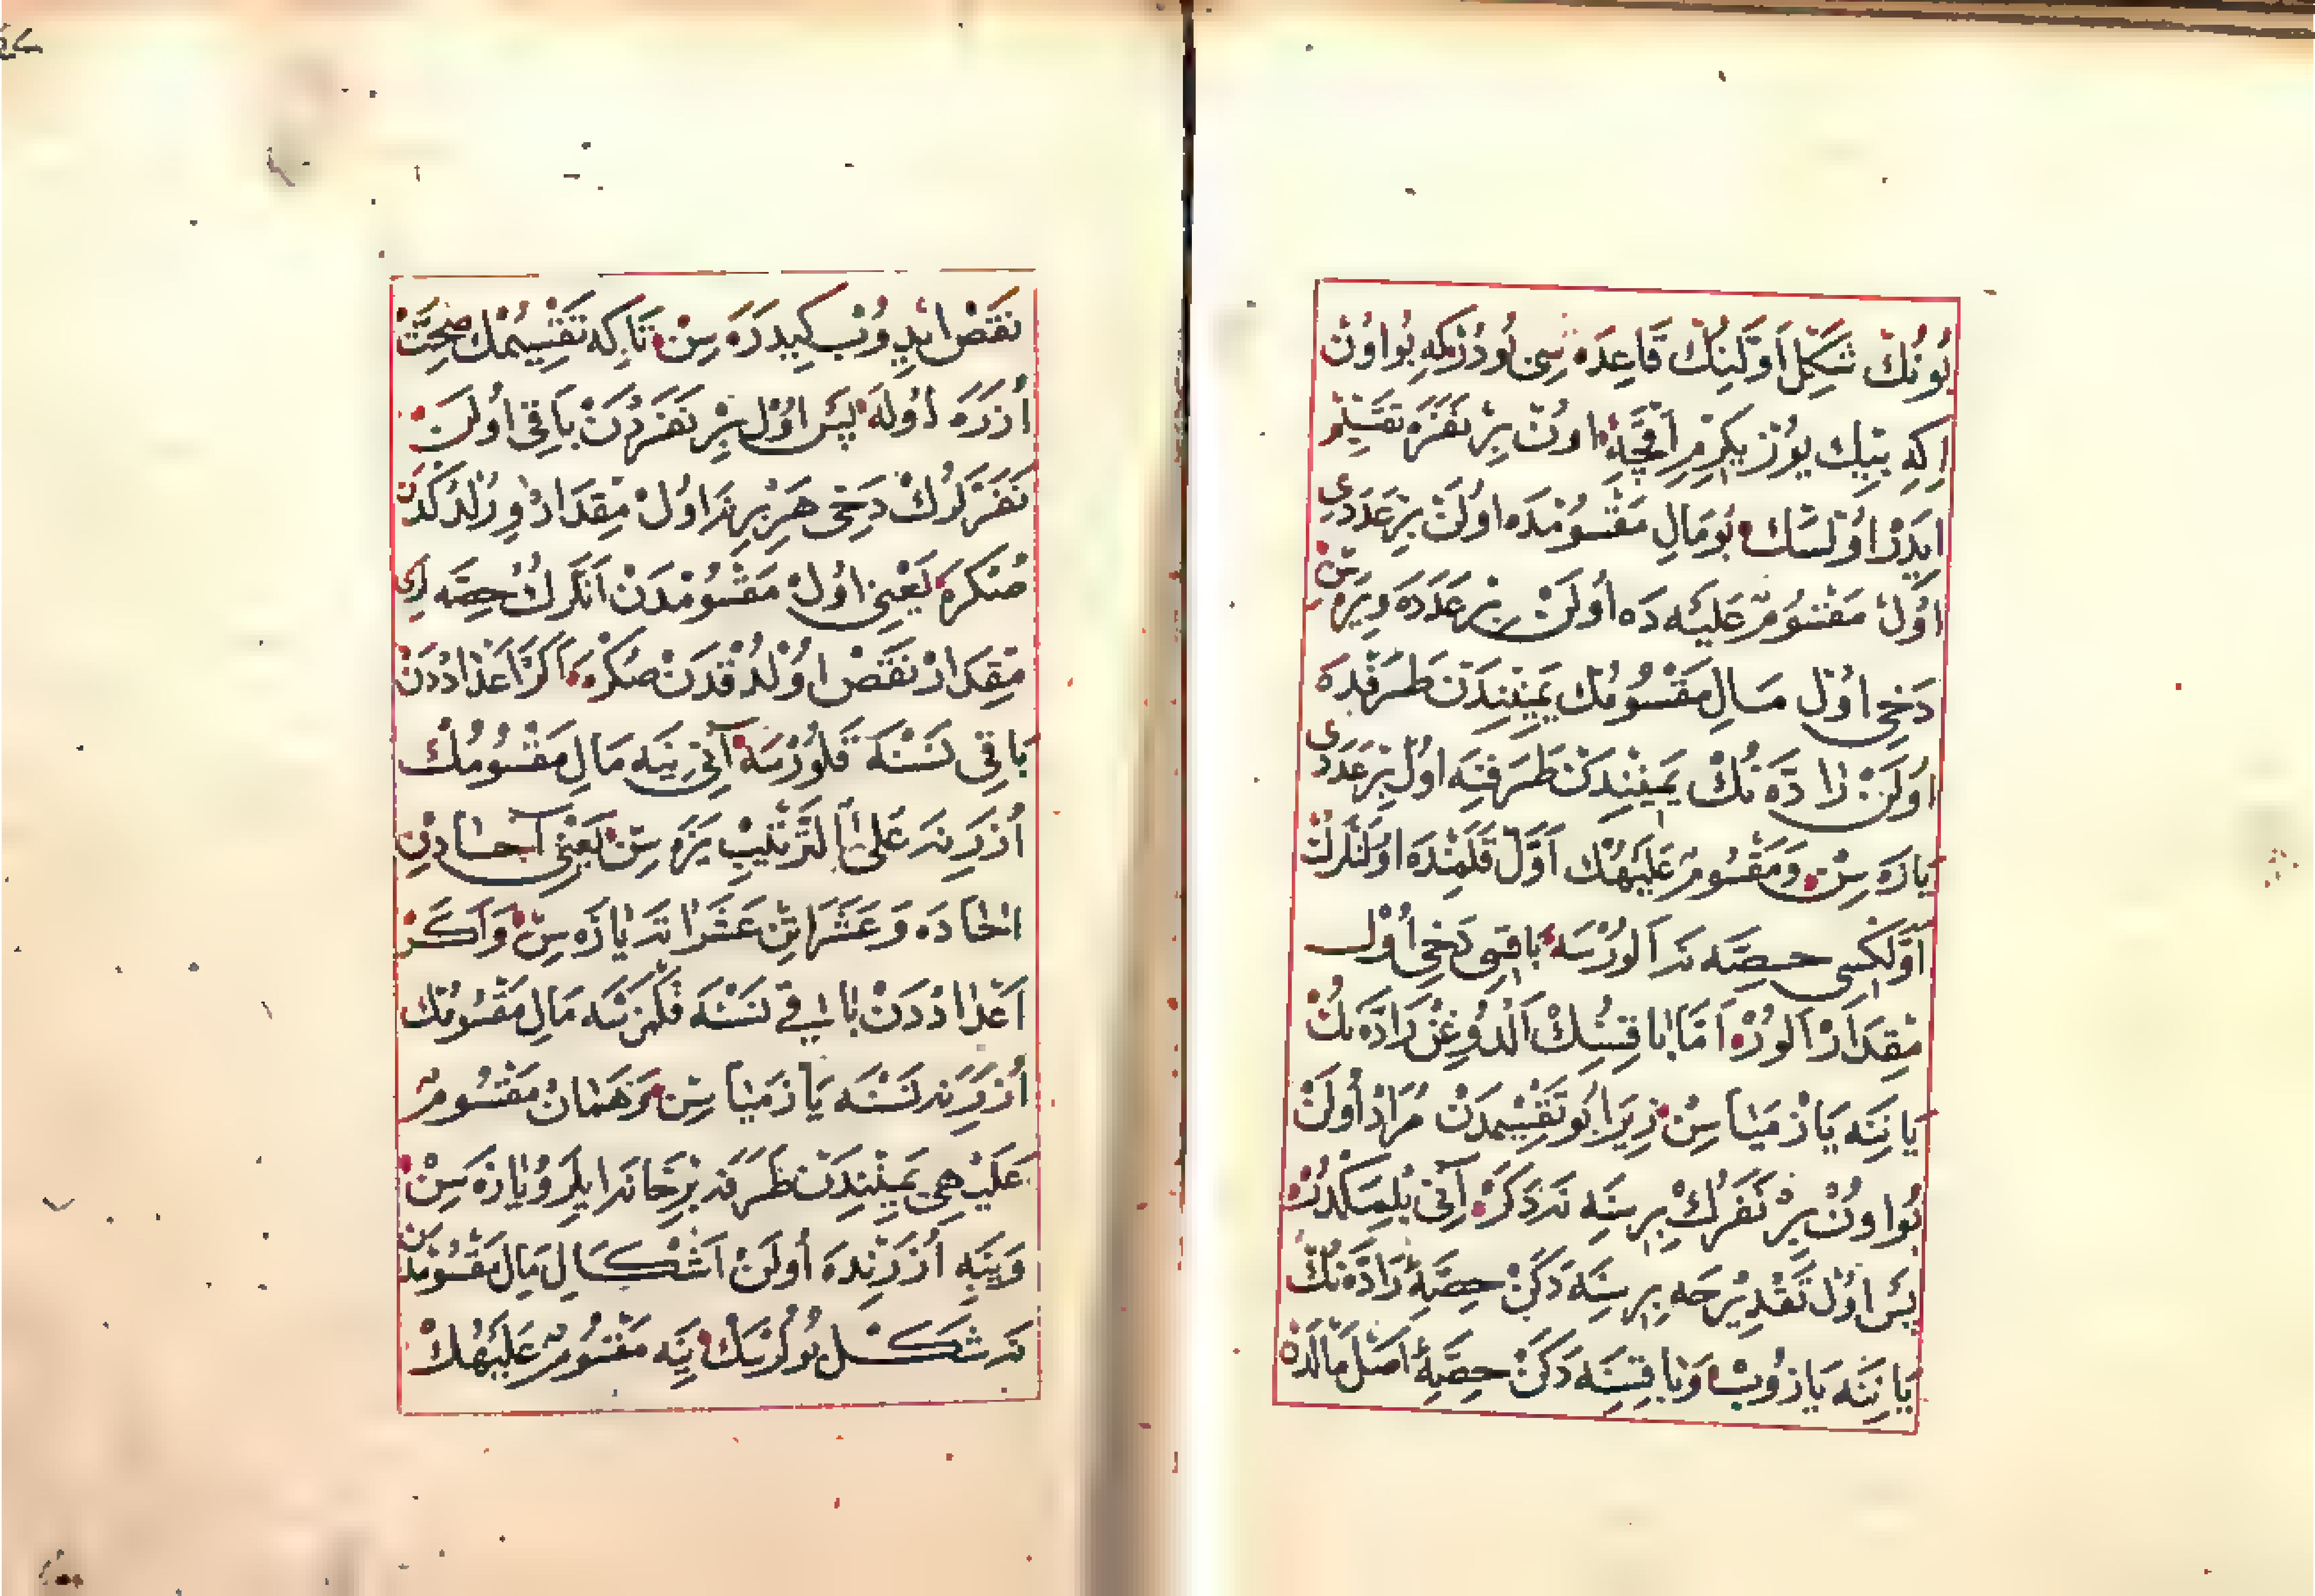 بُونُكْ شَكِلْ اَوَّلِنِكْ قَاعِدَه سِى بُودُرْكِه بُو اوُنْ
اِكِه بِيكْ يُوزْ يِكِرْمِ اَقْچَه اوُنْ بِرْ نَفَرَه تَقْسِيمْ
ايدَرْ اوُلْسَاكْ بُو مَالِ مَقْسُومْدَه اوُلَنْ بِرْ عَدَدِى
اوُلْ مَقْسُومٌ عَلَيْه دَه اوُلَنْ بِرْ عَدَدَه وِيرَه سِنْ
دَخِى اوُلْ مَالِ مَقْسُومُكْ يَمِينِنْدَنْ طَرَفِنْدَه
اوُلَنْ زَادَه نُكْ يَمِينِنْدَنْ طَرَفِنَه اوُلْ بِرْ عَدَدِى
يَازَه سِنْ وَمَقْسُومٌ عَلَيْهُكْ اَوَّلْ قَلَمِنْدَه اوُلَنْلَرُكْ
اَوَّلْكِسِى حِصَّه نَه اَلُورْسَه بَاقِى دَخِى اوُلْ
مِقْدَارْ اَلُورْ اَمَّا بَاقِسِنُكْ اَلْدُوغِنْ زَادَه نُكْ
يَانِنَه يَازْمَيَا سِنْ زِيرَا بُو تَقْسِيمْدَنْ مُرَادْ اوُلَنْ
بُو اوُنْ بِرْ نَفَرُكْ بِرِسِنَه نَه دَكَرْ آنِى بِلْمَكْدُرْ
پَسْ اوُلْ تَقْدِيرْجَه بِرِسِنَه دَكَنْ حِصَّه ءِ زَادَه نُكْ
يَانِنَه يَازُوبْ وَبَاقِسِنَه دَكَنْ حِصَّه ءِ اَصْلِ مَالْدَنْ
نَقْصْ ايدُوبْ كِيدَرَه سِنْ تَاكِه تَقْسِيمُكْ صِحَّتْ
اُزَرَه اوُلَه پَسْ اوُلْ بِرْ نَفَرْدَنْ بَاقِى اوُلَنْ
نَفَرْلَرُكْ دَخِى هَرْ بِرِنَه اوُلْ مِقْدَارْ وِرِلْدُكْدَنْ
صُنْكْرَه يَعْنِى اوُلْ مَقْسُومْدَنْ اَنْلَرُكْ حِصَّه لَرِى
مِقْدَارْ نَقْصْ اوُلْدُقْدَنْ صُنْكْرَه اَكَرْ اَعْدَادْدَنْ
بَاقِى نَسْنَه قَلُورْسَه آنِى يِنَه مَالِ مَقْسُومُكْ
اُزَرِنَه عَلَى التَّرْتِيبْ يَزَه سِنْ يَعْنِى آحَادِنْ
آحَادَه وَعَشَرَاتِنْ عَشَرَاتَه يَازَه سِنْ وَاَكَرْ
اَعْدَادْدَنْ بَاقِى نَسْنَه قَلْمَزْسَه مَالِ مَقْسُومُكْ
اُزَرِنَه نَسْنَه يَازْمَيَا سِنْ هَمَانْ مَقْسُومٌ
عَلَيْهِى يَمِينِنْدَنْ طَرَفَه بِرْ خَانَه ايلَرُو يَازَه سِنْ
وَيِنَه اُزَرِنْدَه اوُلَنْ اَشْكَالِ مَالِ مَقْسُومْدَنْ
نَه شَكْلْ بُولُرْسَكْ يِنَه مَقْسُومٌ عَلَيْهُكْ